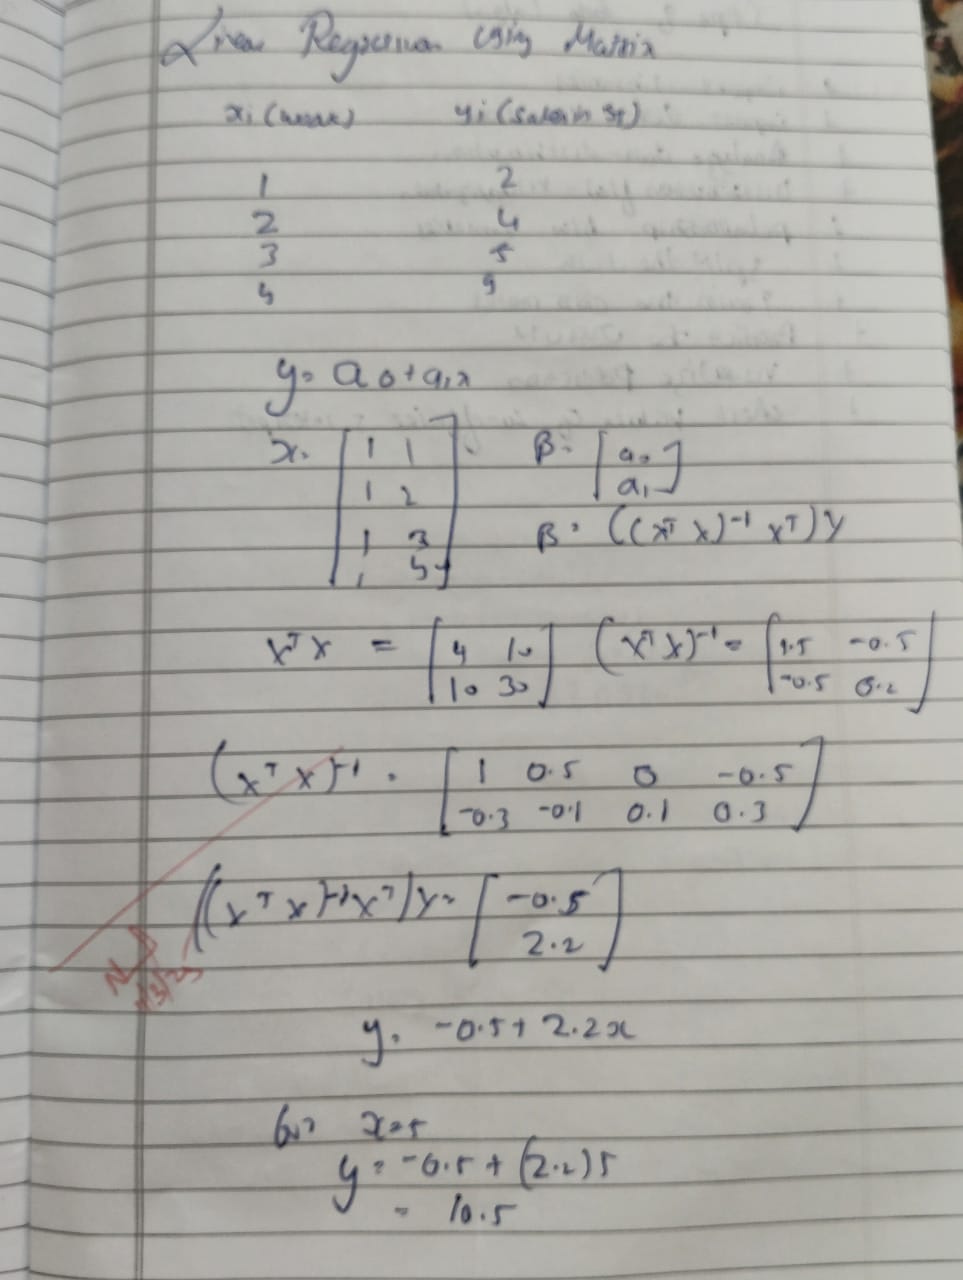 Linear Regression using Matrix
xi (week) yi (Sales in $)
1 2
2 4
3 5
4 9
y = a0 + a1x
x = [1 1 β = [a0
1 2 a1]
1 3 β = ((x^T x)^-1 x^T) y
1 4]
x^T x = [4 10 (x^T x)^-1 = [1.5 -0.5
10 30] -0.5 0.2]
(x^T x)^-1 = [1 0.5 0 -0.5
-0.3 -0.1 0.1 0.3]
((x^T x)^-1 x^T) y = [-0.5
2.2]
y = -0.5 + 2.2x
x = 5
y = -0.5 + (2.2)5
= 10.5